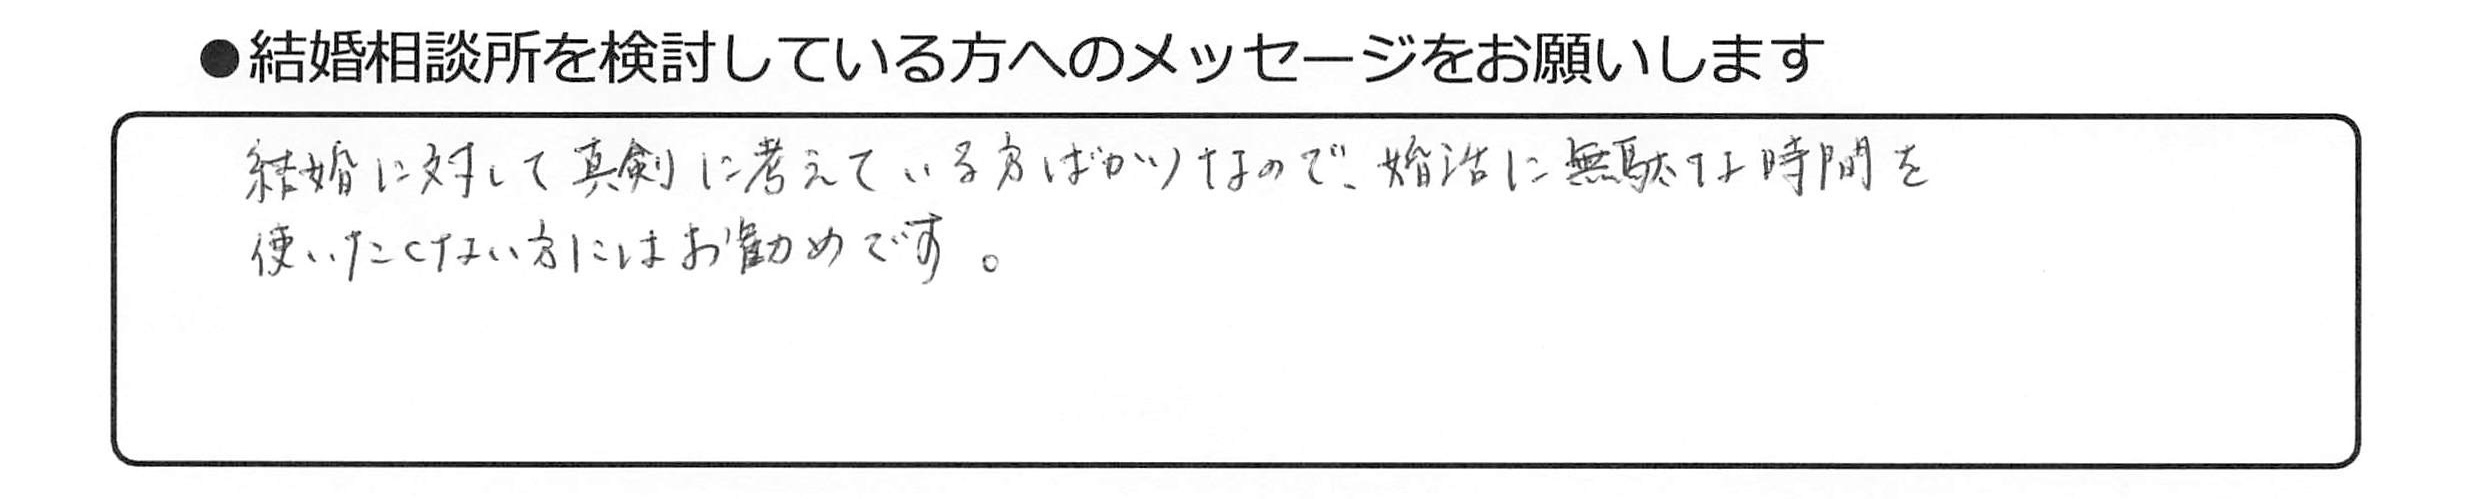 ●結婚相談所を検討している方へのメッセージをお願いします
結婚に対して真剣に考えている方ばかりなので、婚活に無駄な時間を
使いたくない方にはお勧めです。